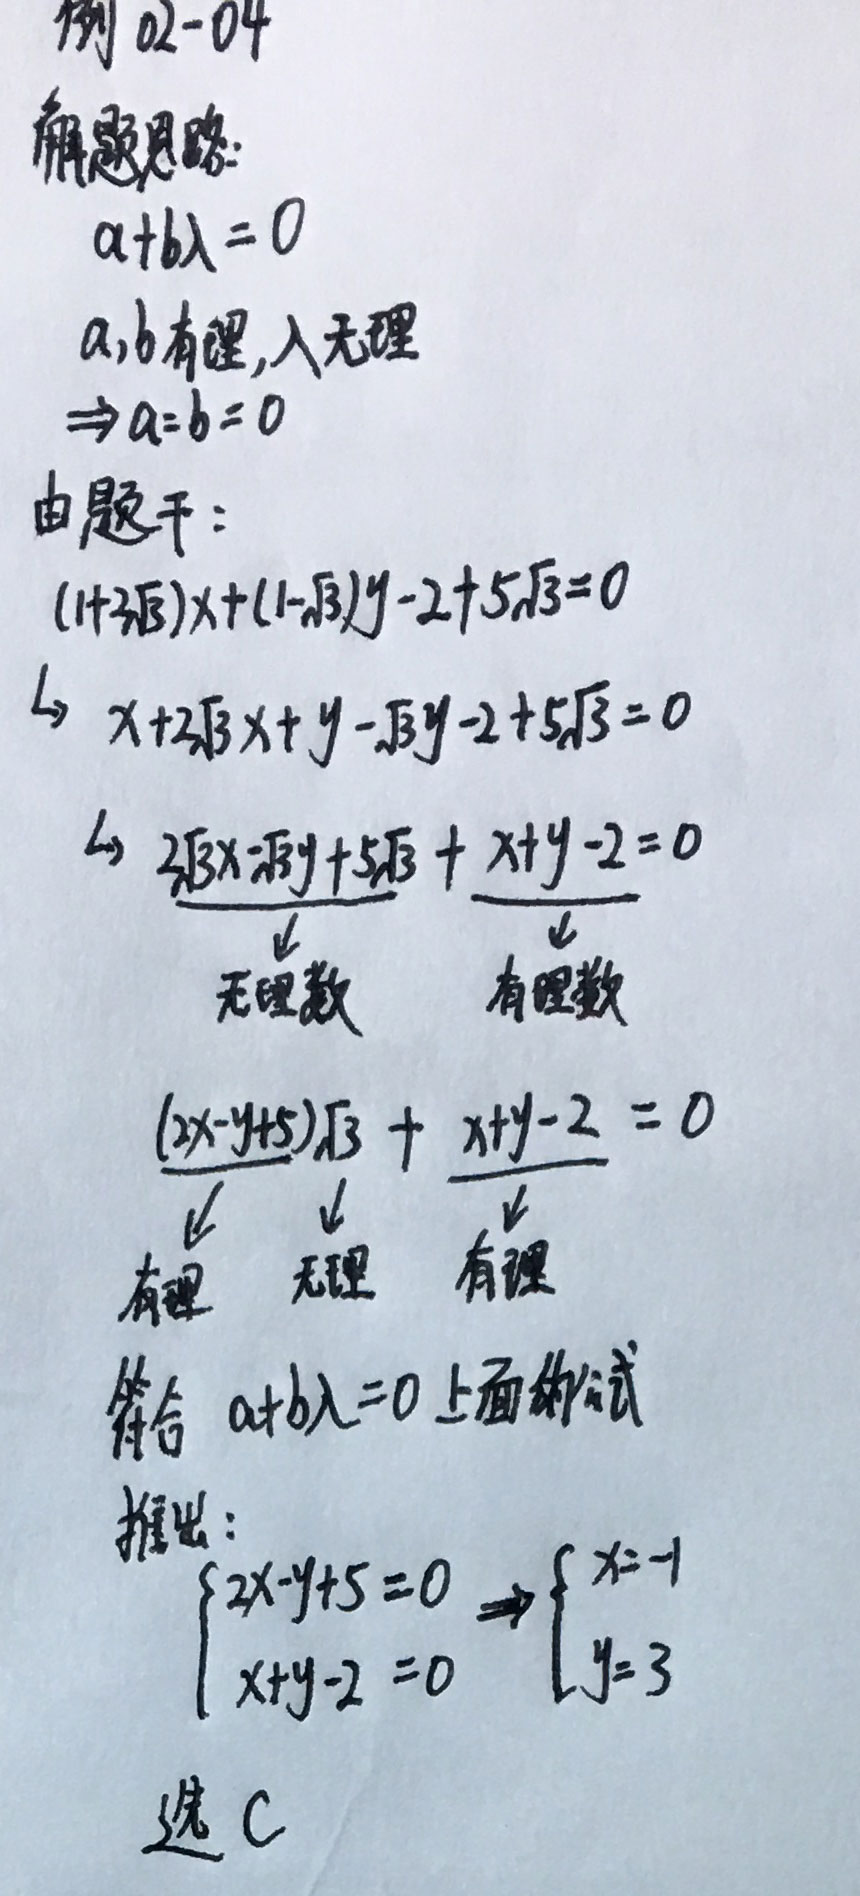 例 02-04
解题思路:
a+bλ=0
a,b有理,λ无理
⇒a=b=0
由题干:
(1+2√3)x+(1-√3)y-2+5√3=0
↳ x+2√3x+y-√3y-2+5√3=0
↳ 2√3x-√3y+5√3 + x+y-2=0
↙ ↙
无理数 有理数
(2x-y+5)√3 + x+y-2 = 0
↙ ↙ ↙
有理 无理 有理
符合 a+bλ=0 上面的公式
推出:
{2x-y+5=0 ⇒ {x=-1
x+y-2=0 y=3
选 C